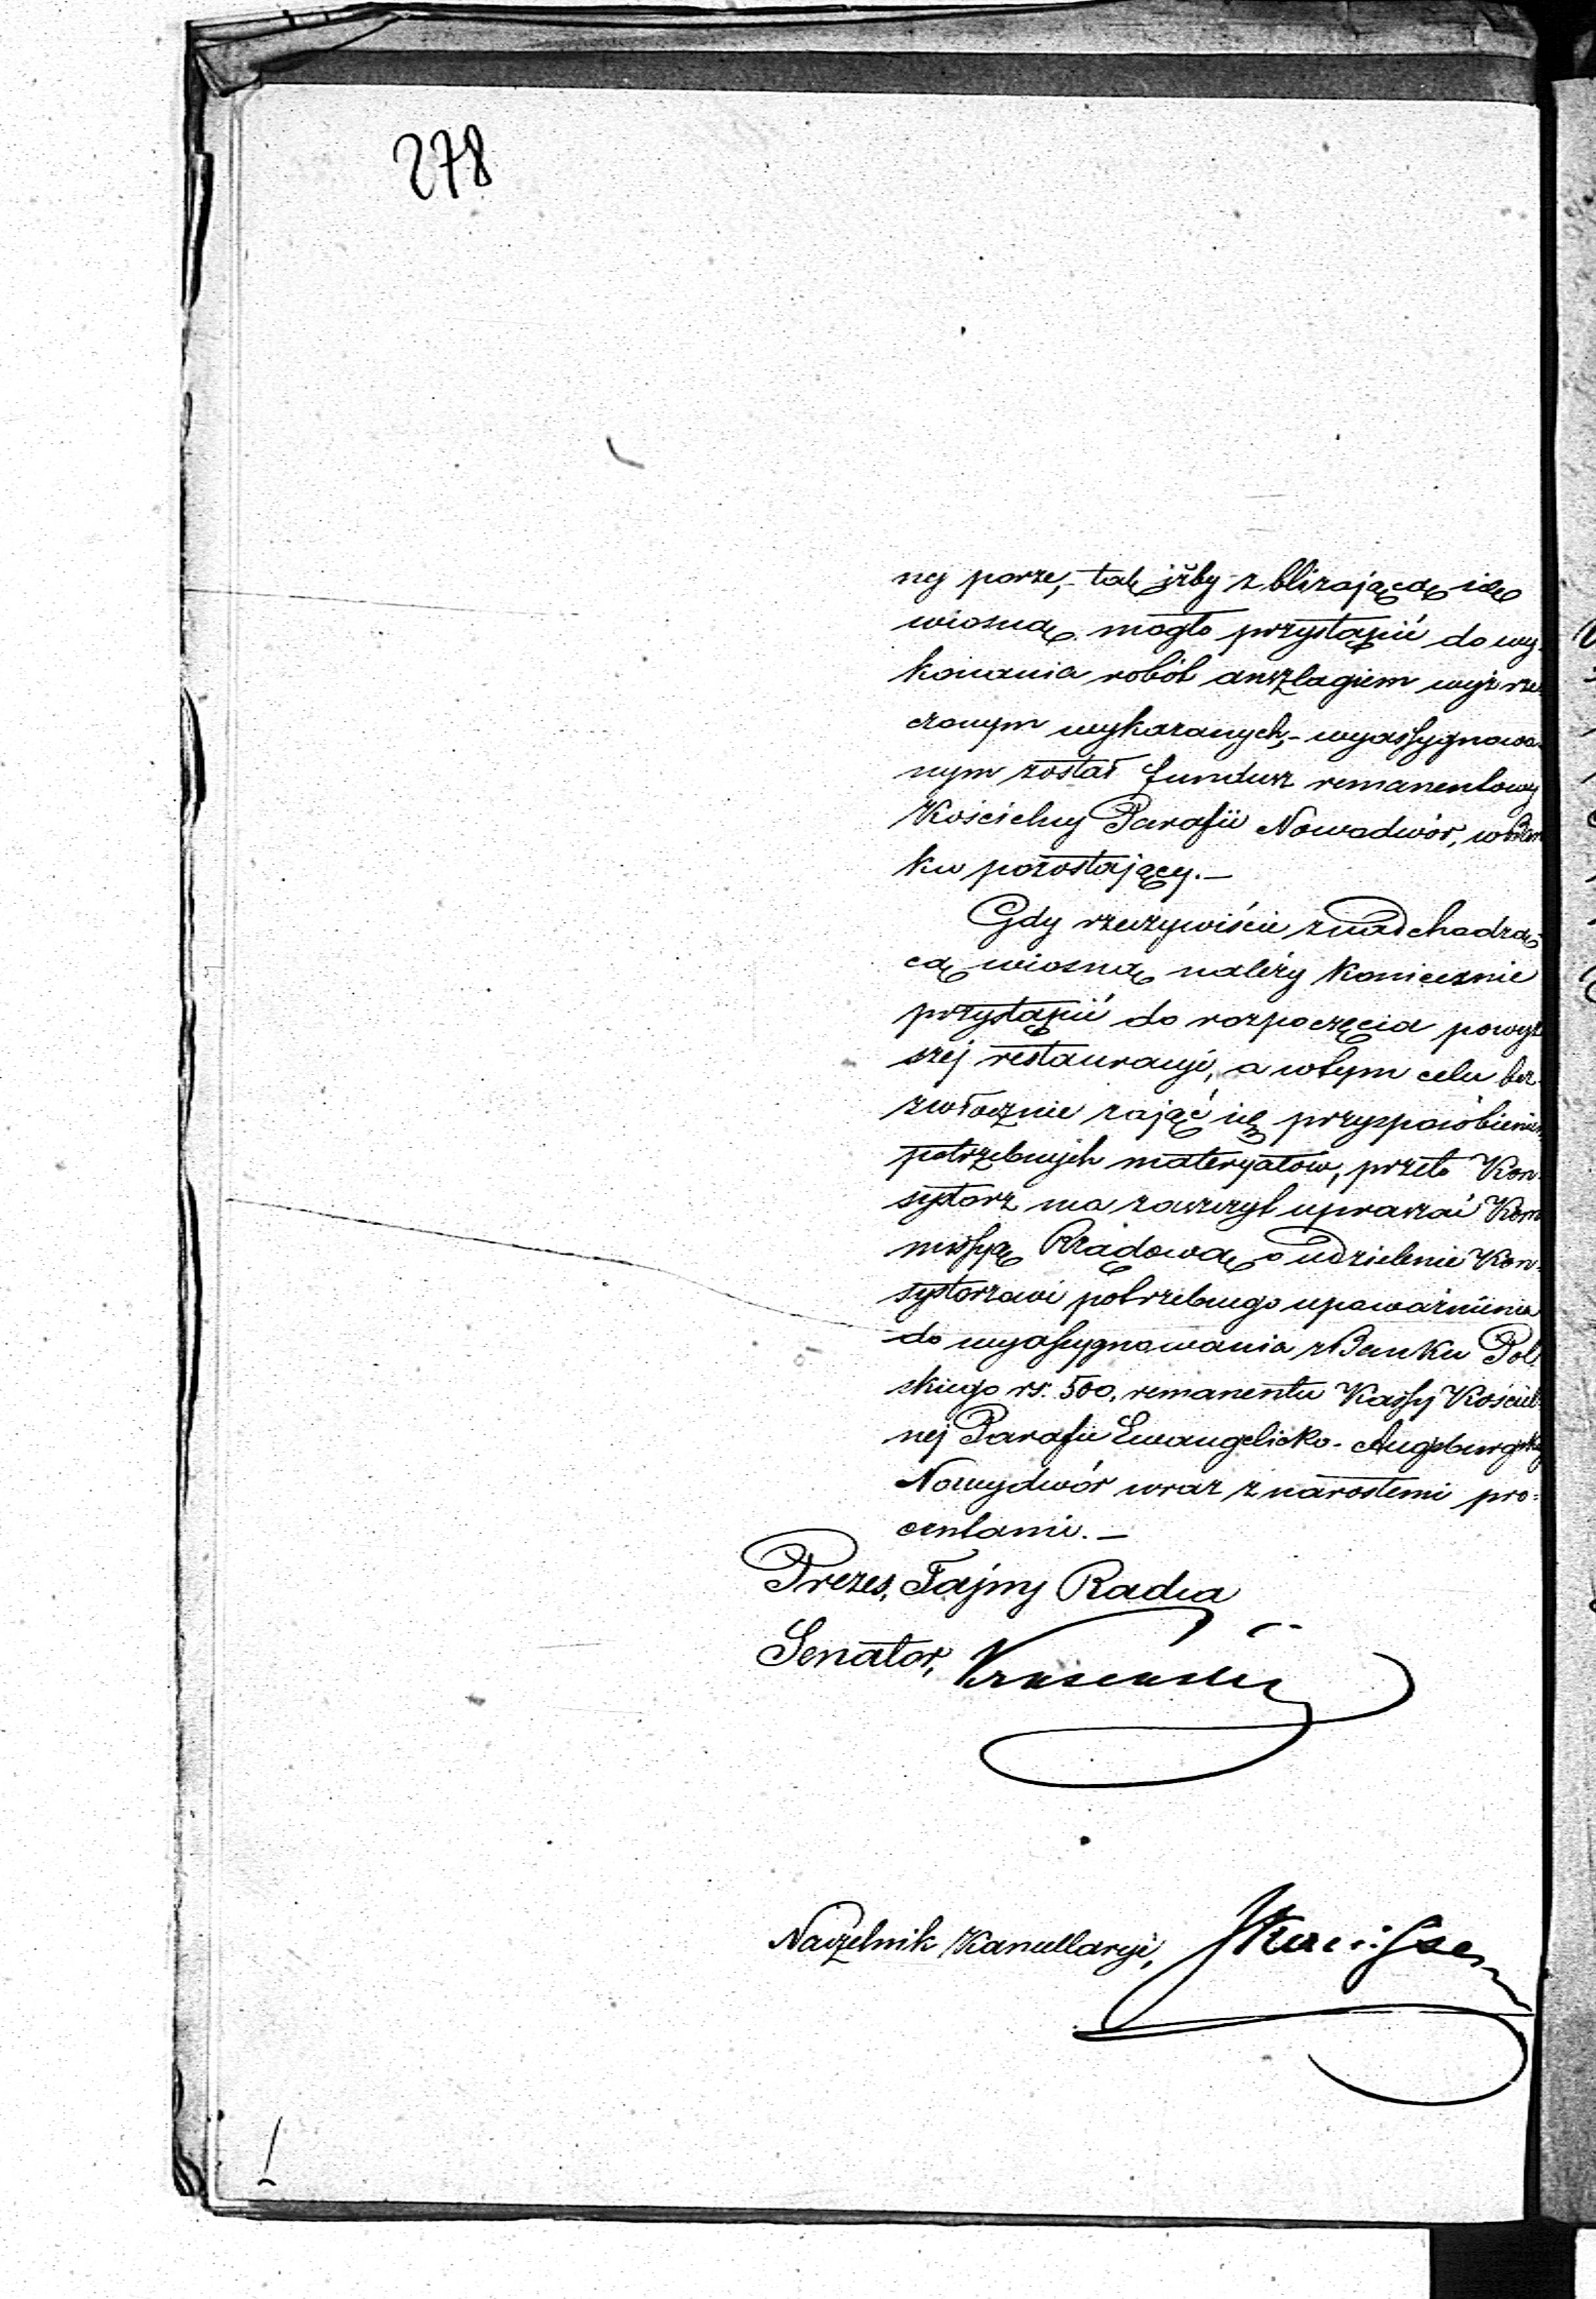 278
nej porze,- tak iżby z blizającą się
wiosną mogło przystąpić do wy-
konania robót anszlagiem wyż rze-
czonym wykazanych,- wyassygnowa-
nym został fundusz remanentowy
Kościelny Parafii Nowadwór, w Ban
ku pozostający.-
Gdy rzeczywiście z nadchodzą-
cą wiosną należy koniecznie
przystąpić do rozpoczęcia powyż
szej restauracyi, a w tym celu bez-
zwłocznie zająć się przysposobieniem
potrzebnych materyałów, przeto Kon-
systorz ma zaszczyt upraszać Kom
missyą Rządową o udzielenie Kon-
systorzowi potrzebnego upoważnienia
do wyassygnowania z Banku Pol
skiego rs. 500, remanentu Kassy Kościel-
nej Parafii Ewangelicko-Augsburgskiej
Nowydwór wraz z narostemi pro=
centami.-
Prezes, Tajny Radca
Senator,
Naczelnik Kancellaryi,